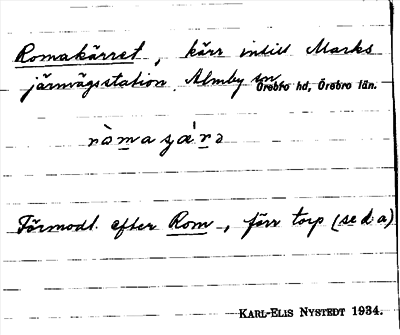 Romakärret, kärr intill Marks
järnvägsstation. Almby sn, Örebro hd, Örebro län.
Förmodl. efter Rom, förr torp (se d. a)
KARL-ELIS NYSTEDT 1934.